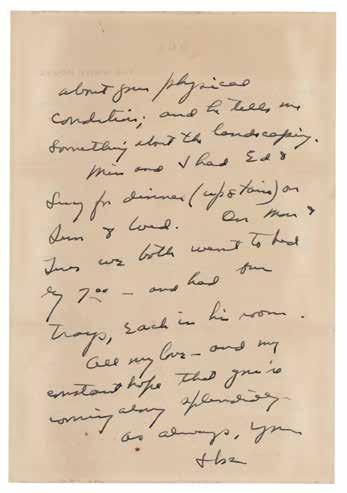 about your physical
condition; and he tells me
something about the landscaping.
Min and I had Ed &
Lucy for dinner (upstairs) on
Sun & Wed. On Mon &
Tues we both went to bed
by 7⁰⁰ — and had our
trays, each in his room.
All my love — and my
constant hope that you're
coming along splendidly
as always, Your
Ike